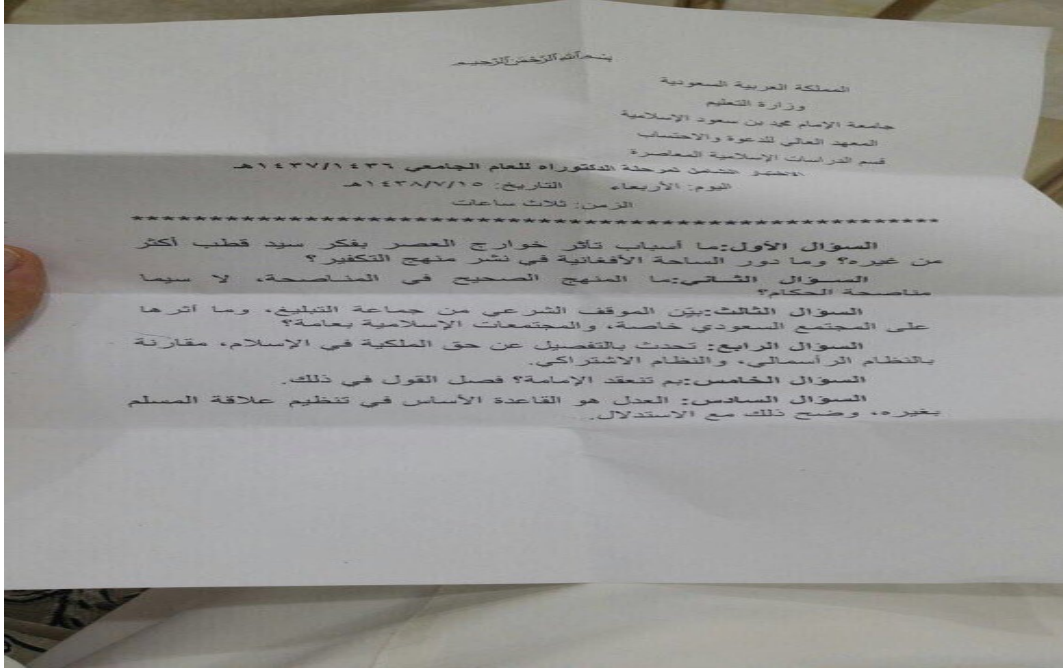 بسم الله الرحمن الرحيم
المملكة العربية السعودية
وزارة التعليم
جامعة الإمام محمد بن سعود الإسلامية
المعهد العالي للدعوة والاحتساب
قسم الدراسات الإسلامية المعاصرة
الاختبار الشامل لمرحلة الدكتوراه للعام الجامعي ١٤٣٧/١٤٣٦هـ
اليوم: الأربعاء التاريخ: ١٤٣٨/٧/١٥هـ
الزمن: ثلاث ساعات
************************************************************
السؤال الأول:ما أسباب تأثر خوارج العصر بفكر سيد قطب أكثر
من غيره؟ وما دور الساحة الأفغانية في نشر منهج التكفير؟
السؤال الثاني:ما المنهج الصحيح في المناصحة، لا سيما
مناصحة الحكام؟
السؤال الثالث:بيّن الموقف الشرعي من جماعة التبليغ، وما أثرها
على المجتمع السعودي خاصة، والمجتمعات الإسلامية بعامة؟
السؤال الرابع: تحدث بالتفصيل عن حق الملكية في الإسلام، مقارنة
بالنظام الرأسمالي، والنظام الاشتراكي.
السؤال الخامس:بم تنعقد الإمامة؟ فصل القول في ذلك.
السؤال السادس: العدل هو القاعدة الأساس في تنظيم علاقة المسلم
بغيره، وضح ذلك مع الاستدلال.